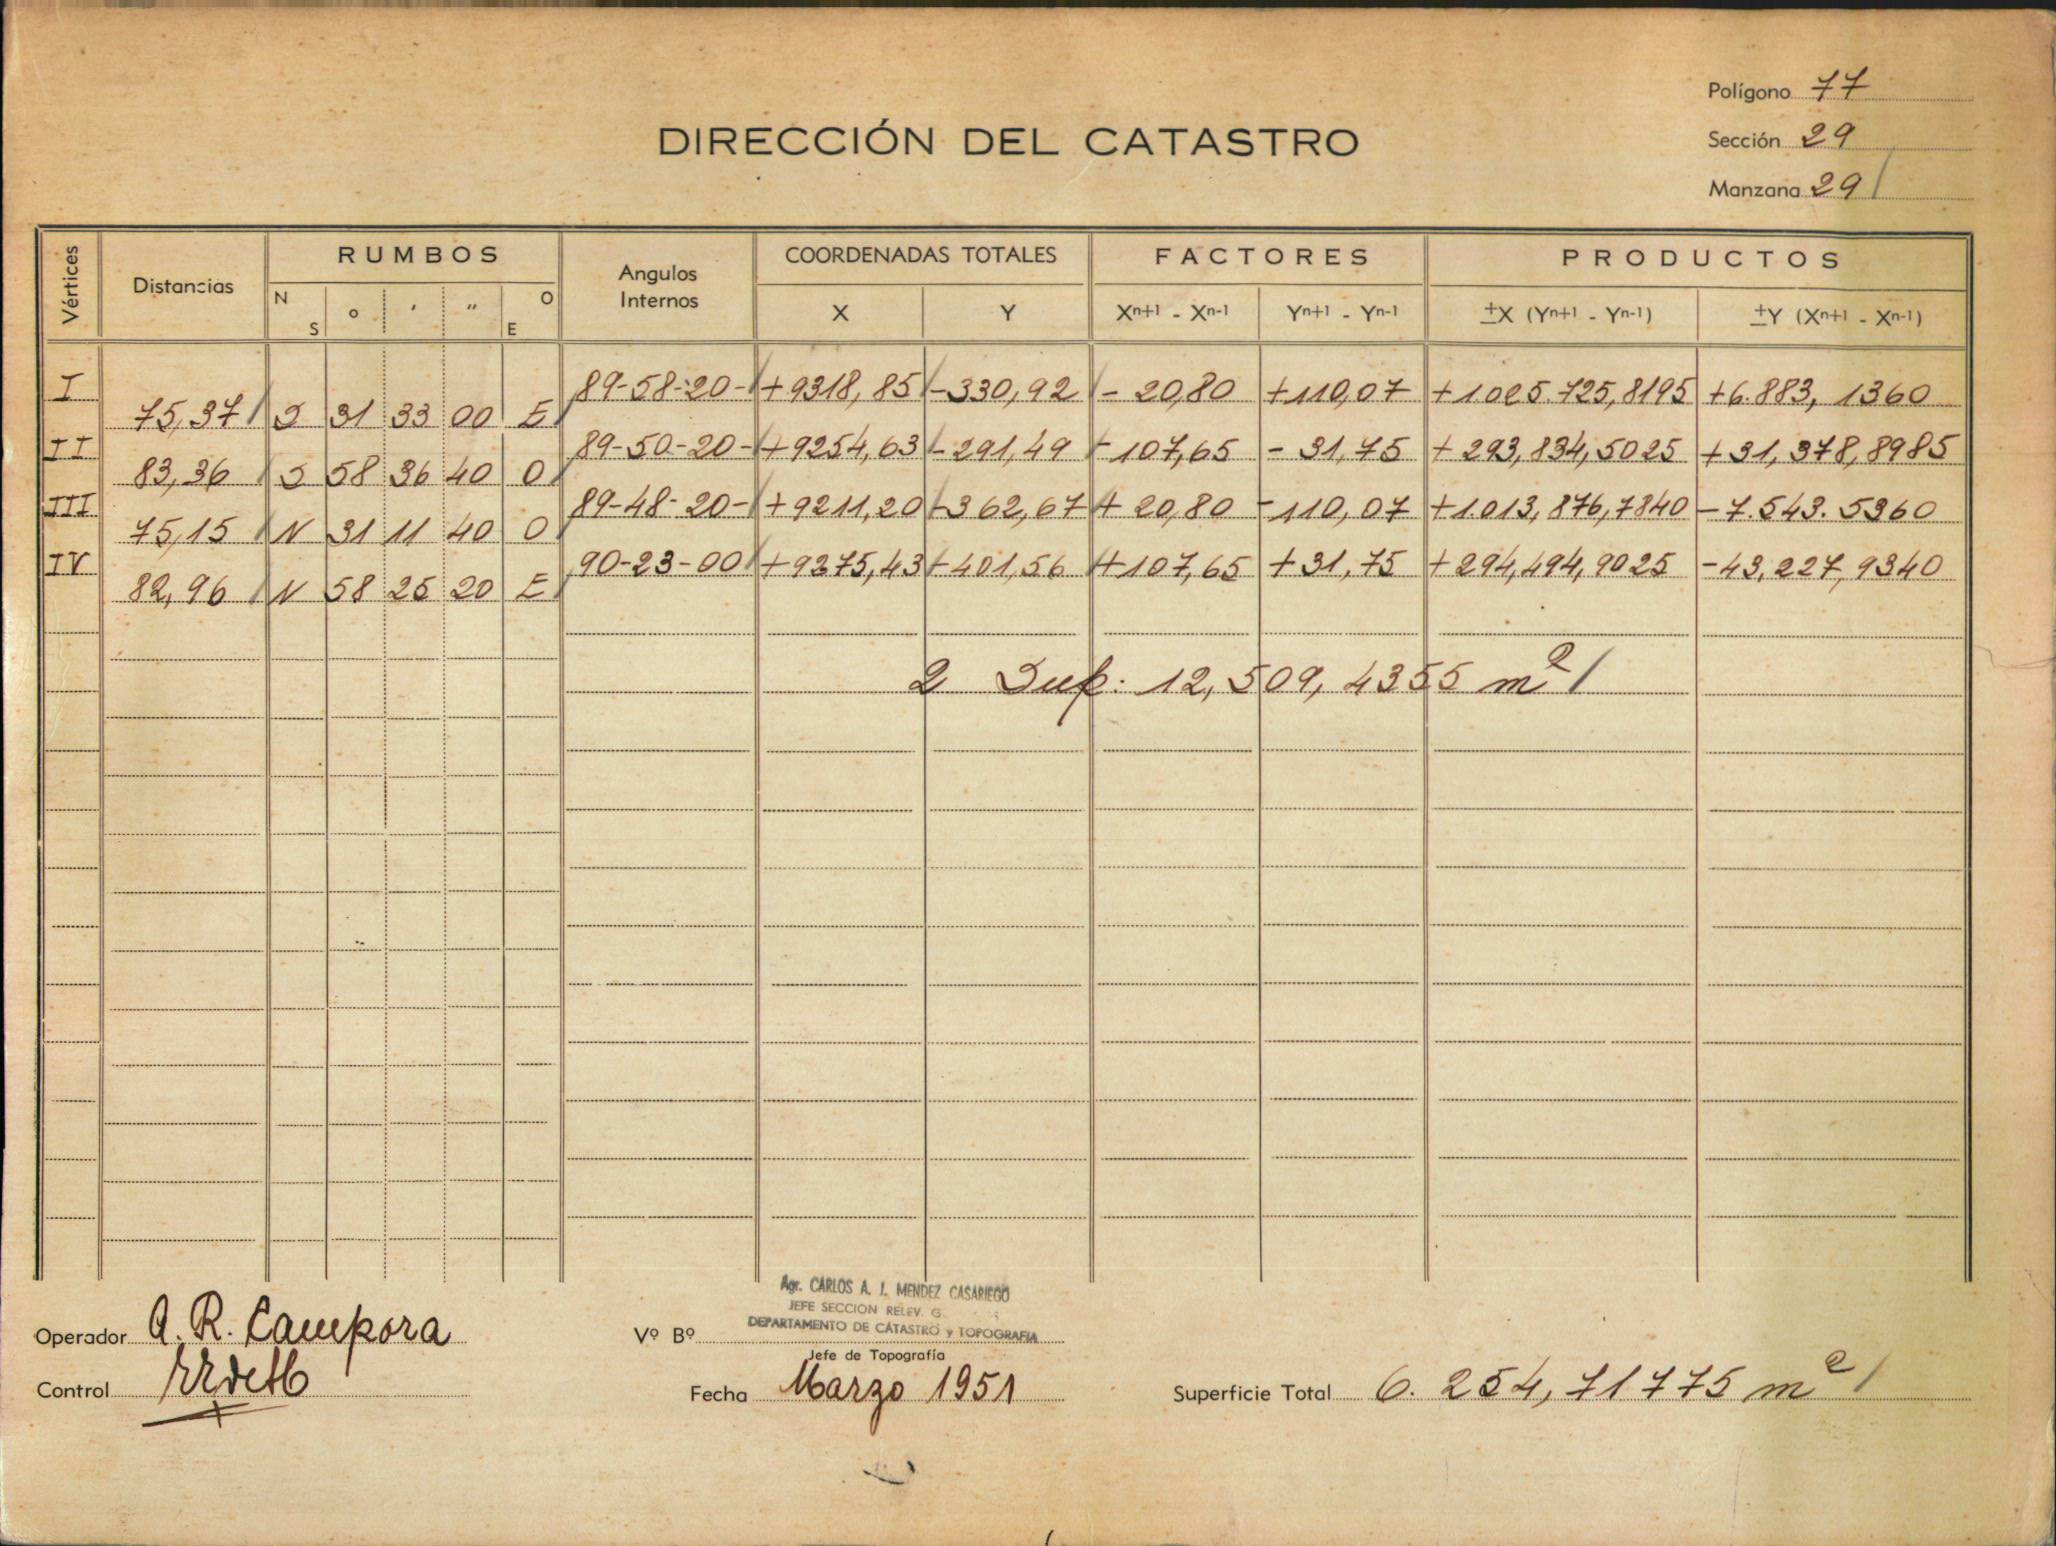 Polígono 77
DIRECCIÓN DEL CATASTRO
Sección 29
Manzana 29 /
Vértices Distancias RUMBOS Angulos Internos COORDENADAS TOTALES FACTORES PRODUCTOS
N S o ' " O E X Y Xn+1 - Xn-1 Yn+1 - Yn-1 ±X (Yn+1 - Yn-1) ±Y (Xn+1 - Xn-1)
I 89-58-20- +9318,85 -330,92 - 20,80 +110,07 +1025.725,8195 +6.883,1360
75,37 S 31 33 00 E
II 89-50-20- +9254,63 -291,49 -107,65 - 31,75 + 293,834,5025 +31,378,8985
83,36 S 58 36 40 O
III 89-48-20- +9211,20 -362,67 + 20,80 -110,07 +1.013,876,7840 -7.543.5360
75,15 N 31 11 40 O
IV 90-23-00 +9275,43 -401,56 +107,65 +31,75 +294,494,9025 -43,227,9340
82,96 N 58 25 20 E
2 Sup: 12,509,4355 m2 /
Agr. CARLOS A. J. MENDEZ CASARIEGO
JEFE SECCION RELEV. G
DEPARTAMENTO DE CATASTRO y TOPOGRAFIA
Operador A. R. Campora Vº Bº
Jefe de Topografía
Control Fecha Marzo 1951 Superficie Total 6.254,71775 m2 /